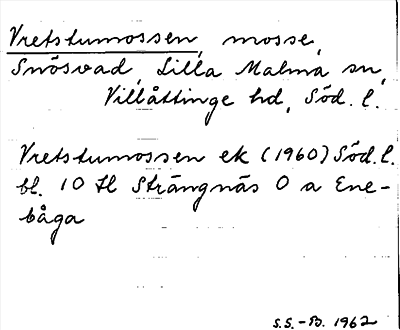 Vretstumossen, mosse,
Snösvad, Lilla Malma sn,
Villåttinge hd, Söd. l.
Vretstumossen ek (1960) Söd. l.
bl. 10 H Strängnäs O a Ene-
båga
S.S.-B. 1962